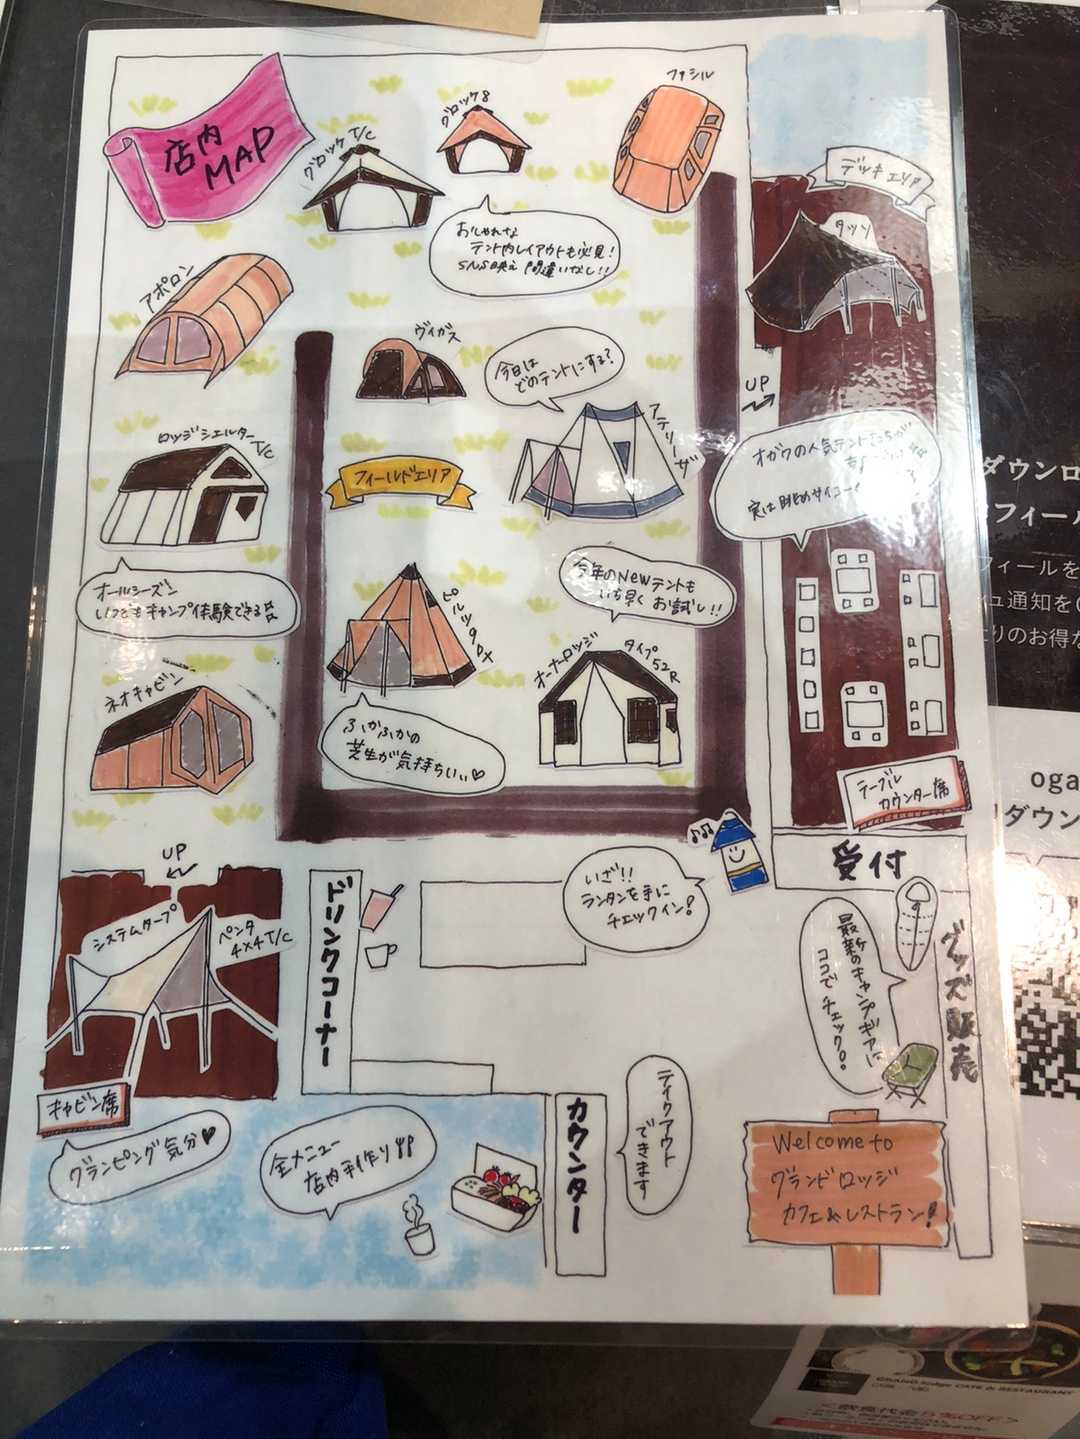 店内
MAP
グロッケT/C
グロッケ8
ファシル
デッキエリア
タッソ
おしゃれな
テント内レイアウトも必見!
SNS映え間違いなし!!
アポロン
ヴィガス
今日は
どのテントにする?
UP
ロッジシェルター
T/C
フィールドエリア
アテリーザ
オガワの人気テントたちが
実は眺めサイコー
オールシーズン
いつでもキャンプ体験できる
今年のNewテントも
いち早くお試し!!
ピルツ
オーナーロッジ
タイプ52R
ネオキャビン
ふかふかの
芝生が気持ちいい♡
テーブル
カウンター席
受付
UP
システムタープ
ペンタ
4×4T/C
ドリンクコーナー
いざ!!
ランタンを手に
チェックイン!
最新のキャンプギアは
ココでチェック
グッズ販売
キャビン席
グランピング気分♡
全メニュー
店内手作り!!
カウンター
テイクアウト
できます
Welcome to
グランドロッジ
カフェ&レストラン!
ダウンロ
フィール
フィールを
ュ通知を
りのお得な
oga
ダウン
GRAND lodge CAFE & RESTAURANT
<飲食代金5%OFF>